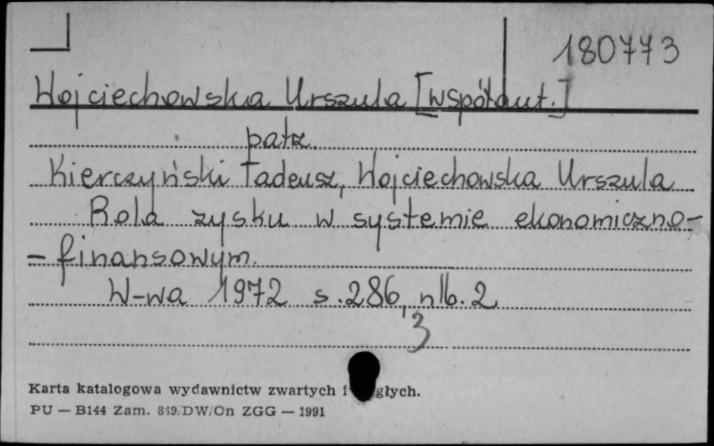 180773
Wojciechowska Urszula [współaut.]
patrz.
Kierczyński Tadeusz, Wojciechowska Urszula
Rola zysku w systemie ekonomiczno-
-finansowym.
W-wa 1972 s. 286, nlb. 2
3
Karta katalogowa wydawnictw zwartych i głych.
PU — B144 Zam. 849/DW/On ZGG — 1991